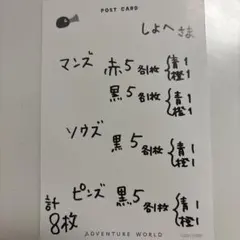 POST CARD
しょへ さま
マンズ 赤5 各1枚 {青1
橙1
黒5 各1枚 {青1
橙1
ソウズ 黒5 各1枚 {青1
橙1
ピンズ 黒5 各1枚 {青1
橙1
計
8枚
ADVENTURE WORLD